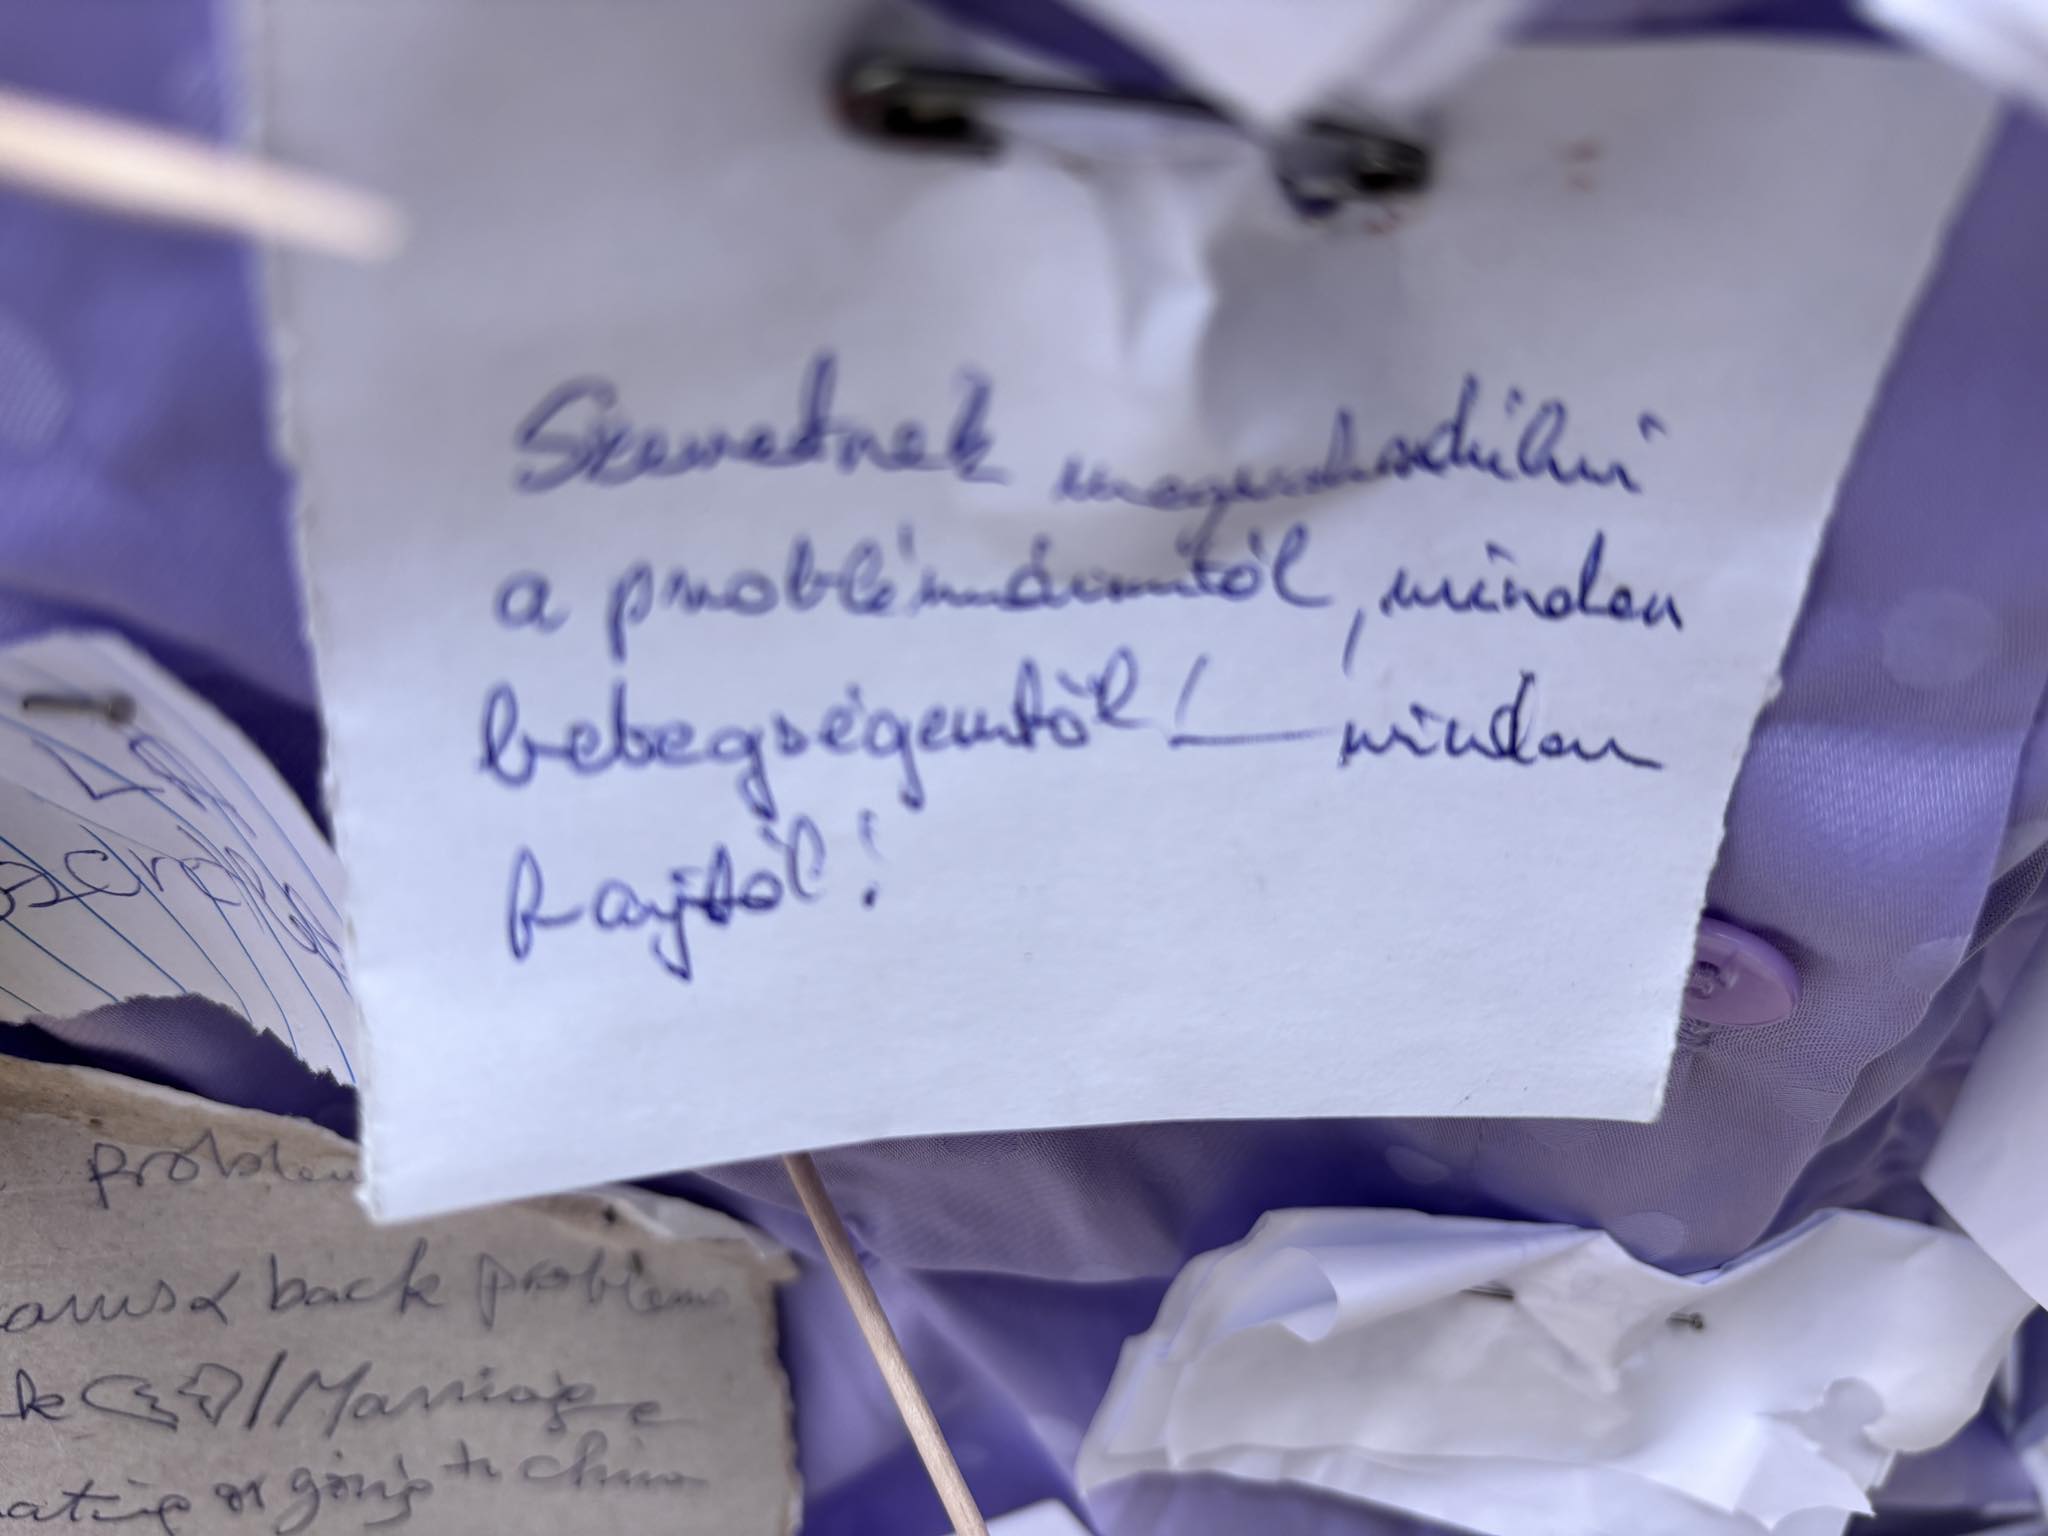 Szeretnék megszabadulni
a problémáimtól, minden
betegségemtől! — minden
bajtól!
problem
back problems
/Marriage
or going to china